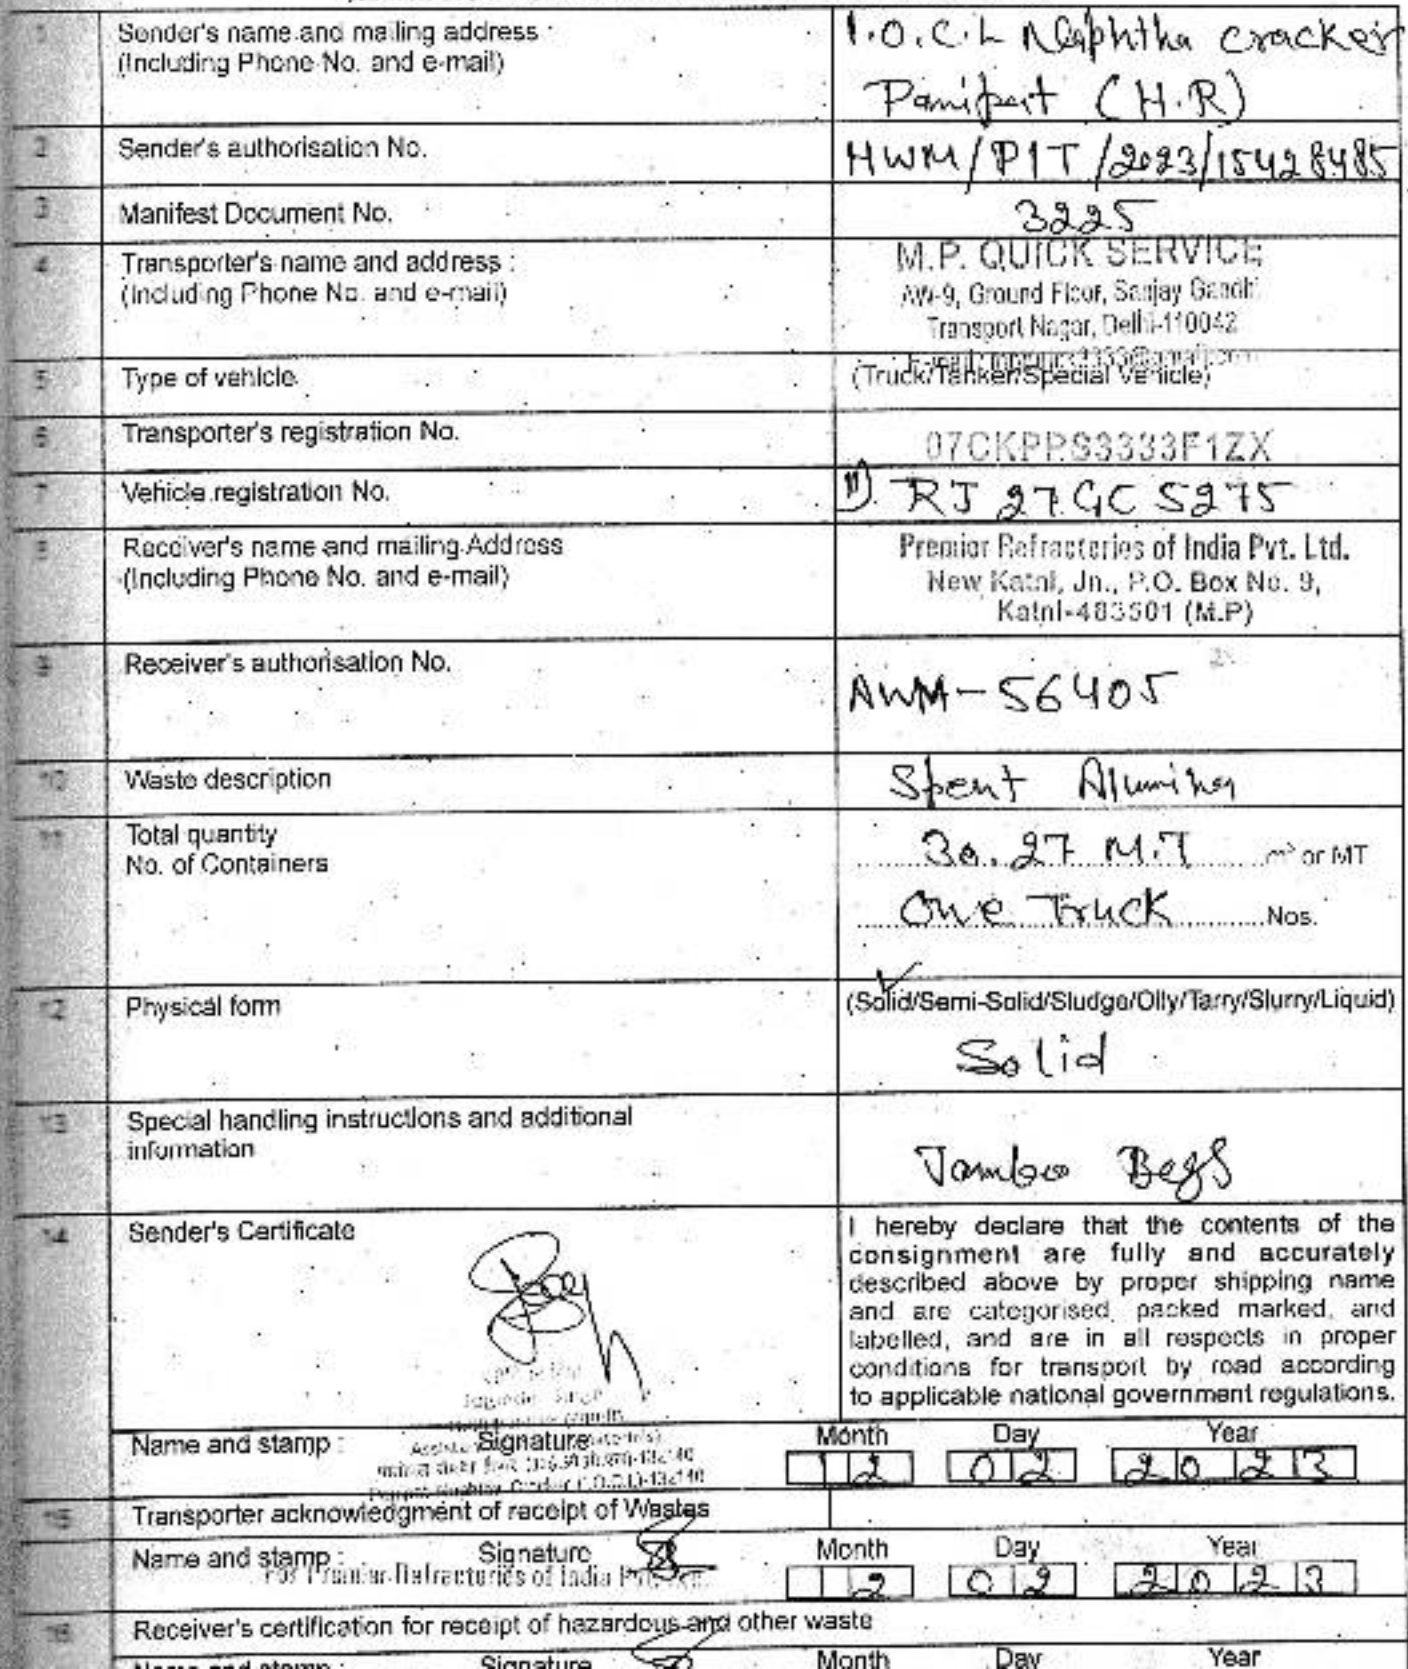 1 Sender's name and mailing address :
(Including Phone No. and e-mail)
I.O.C.L Naphtha cracker
Panipat (H.R)
2 Sender's authorisation No.
HWM/PIT/2023/15428485
3 Manifest Document No.
3225
4 Transporter's name and address :
(Including Phone No. and e-mail)
M.P. QUICK SERVICE
AW-9, Ground Floor, Sanjay Gandhi
Transport Nagar, Delhi-110042
5 Type of vehicle
(Truck/Tanker/Special Vehicle)
6 Transporter's registration No.
07CKPPS3333F1ZX
7 Vehicle registration No.
RJ 27 GC 5275
8 Receiver's name and mailing Address
(Including Phone No. and e-mail)
Premier Refractories of India Pvt. Ltd.
New Katni, Jn., P.O. Box No. 9,
Katni-483501 (M.P)
9 Receiver's authorisation No.
AWM-56405
10 Waste description
Spent Alumina
11 Total quantity
No. of Containers
30.27 M.T m³ or MT
One Truck Nos.
12 Physical form
(Solid/Semi-Solid/Sludge/Oily/Tarry/Slurry/Liquid)
Solid
13 Special handling instructions and additional
information
Jamboo Begs
14 Sender's Certificate
I hereby declare that the contents of the
consignment are fully and accurately
described above by proper shipping name
and are categorised, packed marked, and
labelled, and are in all respects in proper
conditions for transport by road according
to applicable national government regulations.
Name and stamp : Signature Month Day Year
12 02 2023
15 Transporter acknowledgment of receipt of Wastes
Name and stamp : Signature Month Day Year
For Premier Refractories of India
12 02 2023
16 Receiver's certification for receipt of hazardous and other waste
Name and stamp : Signature Month Day Year